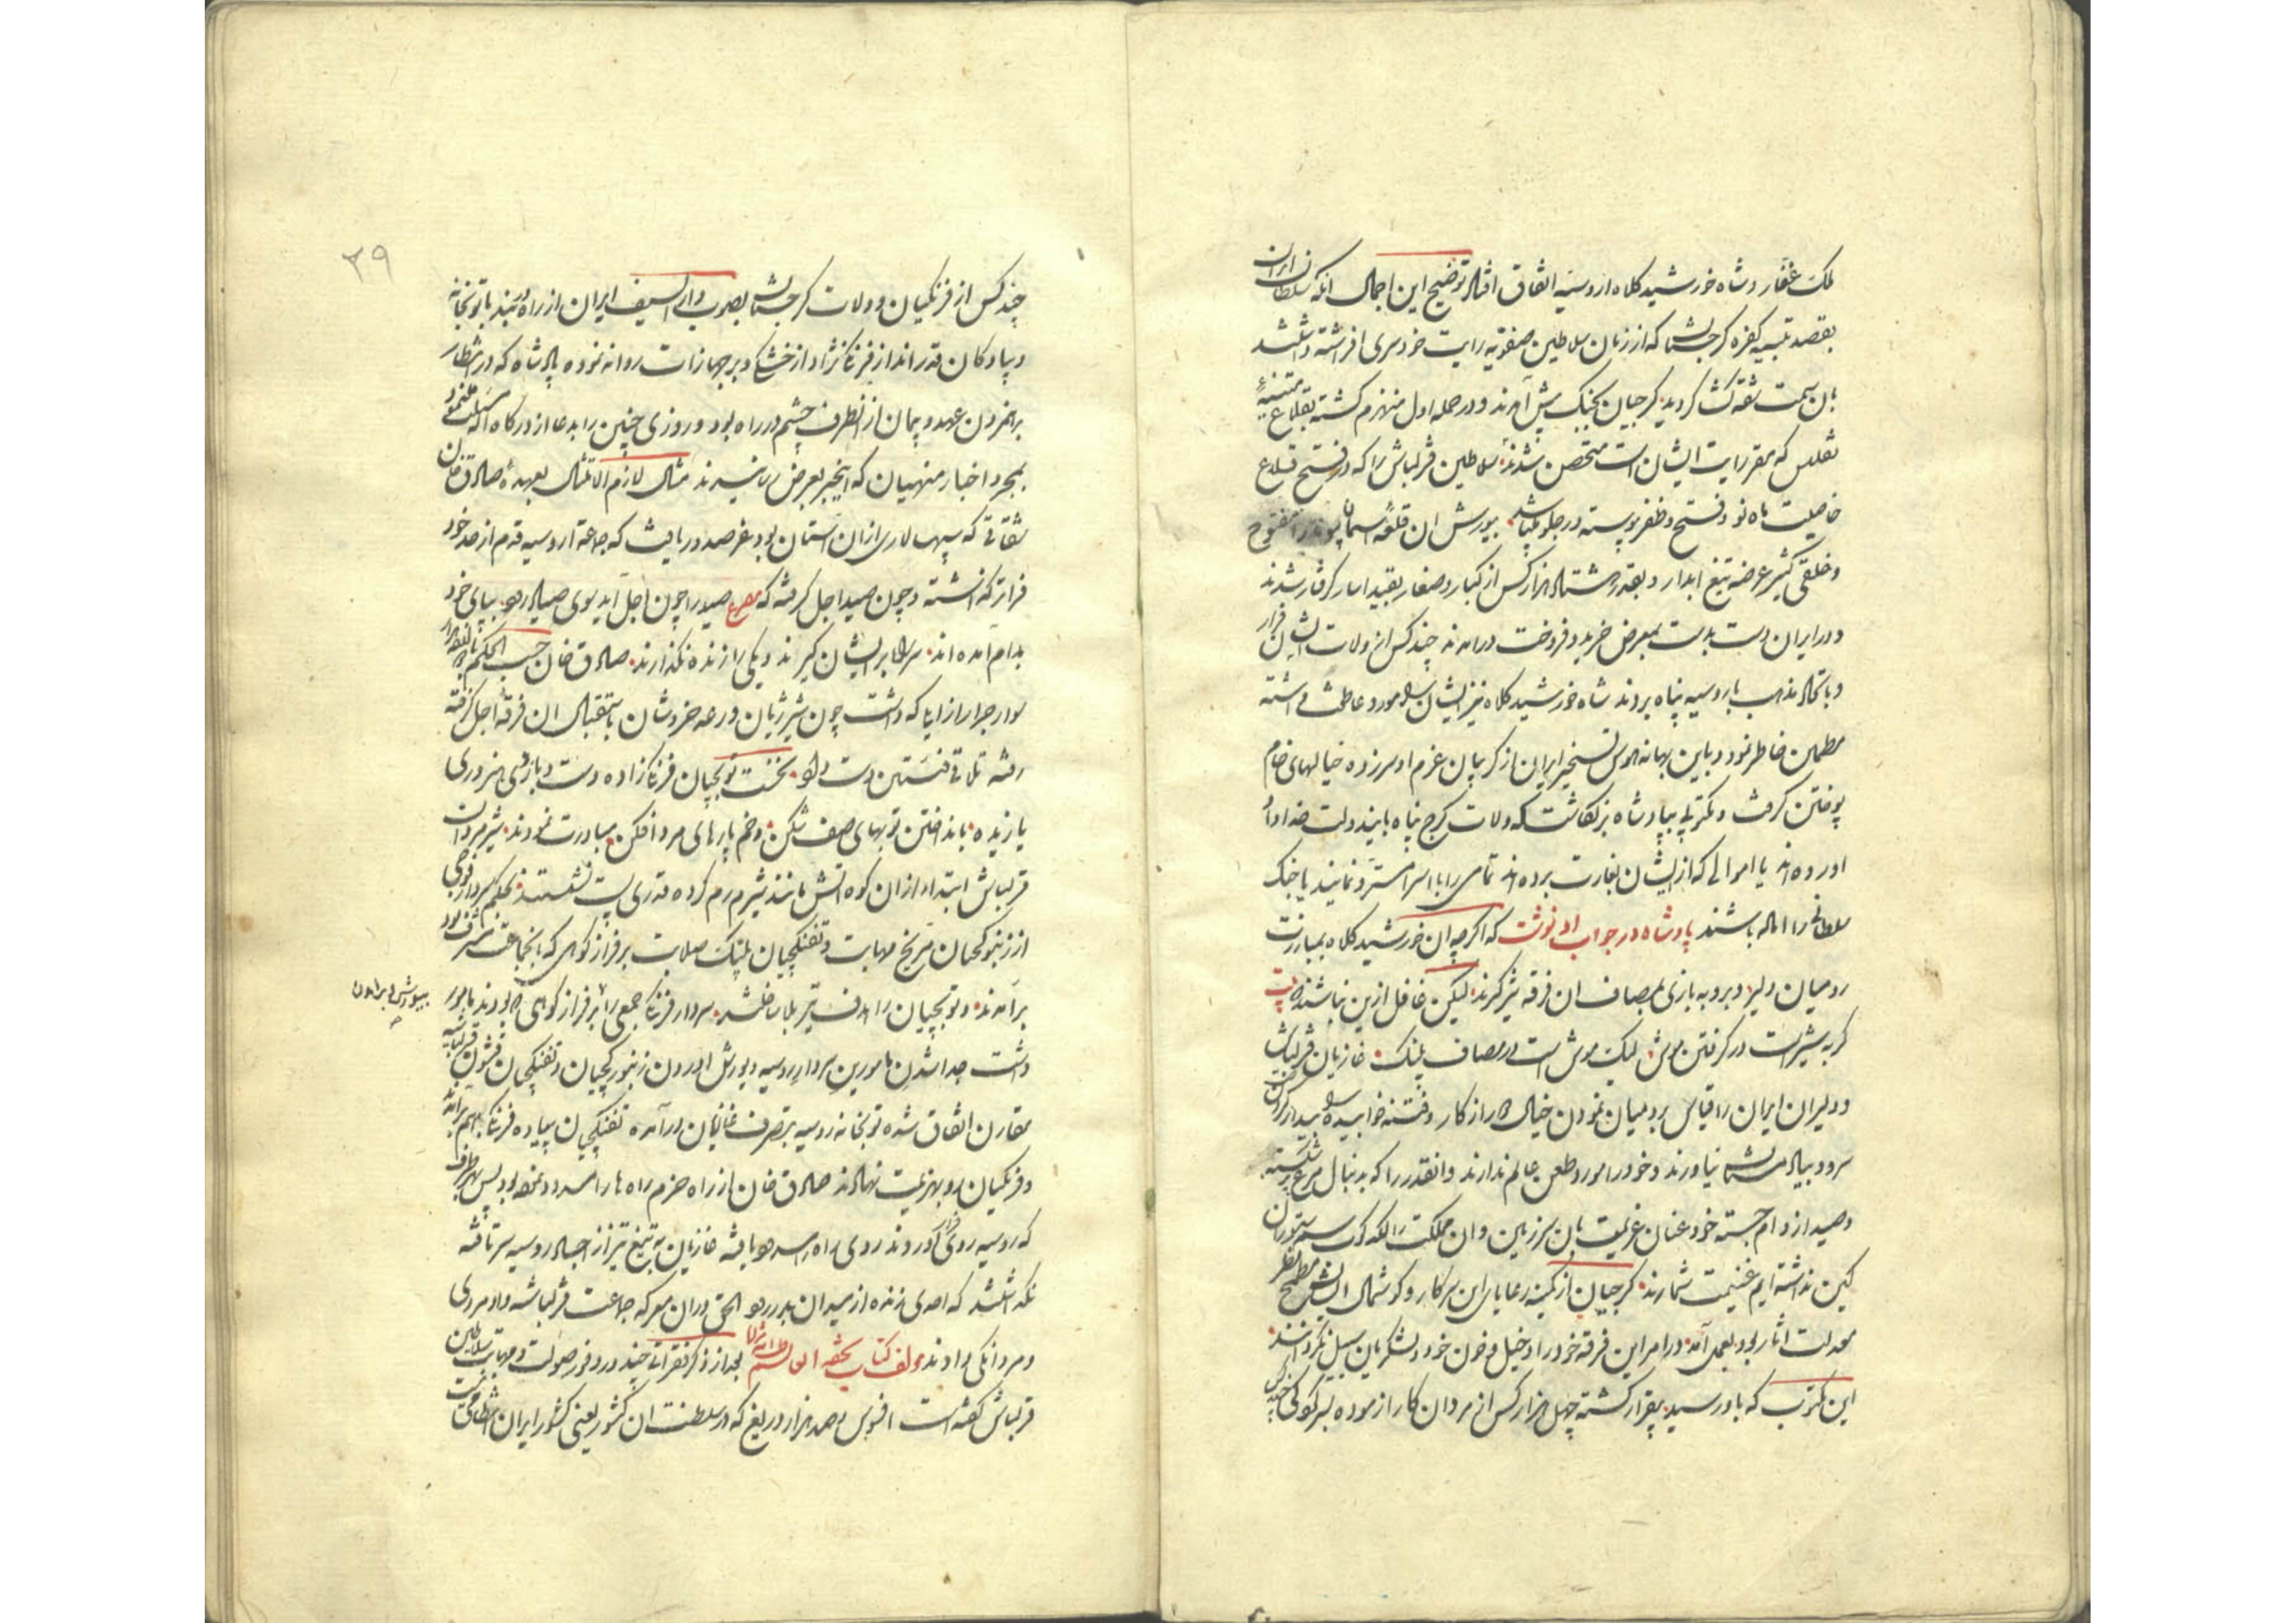 ملک غفار و شاه خورشید کلاه اروسیه اتفاق افتاد توضیح این اجمال آنکه سلطان ایران
بقصد تنبیه کفره گرجستان که از زمان سلاطین صفویه رایت خودسری افراشته داشتند
بان سمت شقه کش گردید گرجیان بجنگ پیش آمدند و در حمله اول منهزم گشته بقلاع متینه
تفلیس که مقر رایت ایشان است متحصن شدند سلاطین قزلباش را که در فتح قلاع
خاصیت ماه نو و فتح و ظفر پیوسته در جلو میباشد بیورش ان قلعه آسمان پیوند را مفتوح
و خلقی کثیر عرضه تیغ ابدار و بقدر هشتاد هزار کس از کبار و صغار بقید اسار گرفتار شدند
و در ایران دست بدست بمعرض خرید و فروخت درامدند چند کس از ولات ایشان فرار
و باتحاد مذهب باروسیه پناه بردند شاه خورشید کلاه نیز ایشان را مورد عاطفت داشته
مطمئن خاطر نمود و باین بهانه هوس تسخیر ایران از گریبان عزم او سرزده خیالهای خام
پوختن گرفت و مکتوبی بپادشاه بزنگاشت که ولات گرج پناه بایندولت خداداد
اورده اند یا اموالی که از ایشان بغارت برده اند تمامی را با اسرا مسترد نمایند یا جنگ
سلطانی را اماده باشند پادشاه در جواب او نوشت که اگرچه ان خورشید کلاه بمبارزت
رومیان دلیر و بروبه بازی بمصاف ان فرقه شیرگیرند لیکن غافل ازین نباشند بیت
گربه شیر است در گرفتن موش لیک موش است در مصاف پلنگ غازیان قزلباش
و دلیران ایران را قیاس برومیان نمودن خیال دور از کار و فتنه خوابیده را بیدار کردن
سر و بیاد مستمان نیاورند و خود را مورد طعن عالم ندارند و انقدر را که بدنبال مرغ پر شکسته
و صید از دام جسته خود عنان عزیمت بان سرزمین و ان مملکت را لگدکوب ستوران
کین نداشته ایم غنیمت شمارند گرجیان از کمینه رعایای این سرکار و گوشمال ایشان مطمح نظر
معدلت اثار بود بعمل آمد در امر این فرقه خود را دخیل و خون خود و لشکریان سبیل نگردانند
این مکتوب که باو رسید بیقرار گشته چهل هزار کس از مردان کار ازموده بسرکردگی
۳۹
چند کس از فرنگیان و ولات گرجستان بصوب دار السیف ایران از راه دربند با توپخانه
و پیادگان قدرانداز فرنگ نژاد از خشکی و بر جهازات روانه نموده پادشاه که در انتظار
برهم زدن عهد و پیمان از انطرف چشم در راه بود و روزی چنین را بدعا از درگاه اله مسئلت مینمود
بمجرد اخبار منهیان که اینخبر بعرض رسانیدند مثال لازم الامتثال بعهده صادق خان
شقاقی که سپهسالاری ازان استان بود عرصدور یافت که جماعة اروسیه قدم از حد خود
فراتر گذاشته و چون صید اجل گرفته که مصرع صید را چون اجل آید سوی صیاد رود بپای خود
بدام آمده اند سر راه بر ایشان گیرند و یکی را زنده نگذارند صادق خان حسب الحکم با هفده هزار
سوار جرار از ایلی که داشت چون شیر ژیان و رعد خروشان باستقبال ان فرقه اجل گرفته
رفته تلاقی فئتین دست داد نخست توپچیان فرنگ زاده دست و بازوی هنروری
یازیده باندختن توپهای صف شکن و خمپارهای مردافکن مبادرت نمودند شیرمردان
قزلباش ابتدا ازان کوه اتش مانند شیر رم کرده قدری پست نشستند بحکم سردار فوجی
از زنبورکچیان مریخ مهابت و تفنگچیان پلنگ صلابت بر فراز کوهی که بانجماعت مشرف بود
برآمدند و توپچیان را هدف تیر بلا ساختند سردار فرنگ جمعی را بر فراز کوهی که بودند مامور
بیورش و براوردن
داشت جدا شدن مامورین سردار روسیه و یورش اوردن زنبورکچیان و تفنگچیان قشون قزلباشیه
مقارن اتفاق شده توپخانه روسیه بتصرف غازیان درآمده تفنگچیان پیاده فرنگ بهم برآمده
و فرنگیان رو بهزیمت نهادند صادق خان از راه حزم راه ها را مسدود نموده بود پس بهر طرف
که روسیه روی آوردند روی راه مسدود یافته غازیان به تیغ تیز از اجساد روسیه سر تافته
نگذاشتند که احدی زنده از میدان بدر رود الحق دران معرکه جماعت قزلباشه داد مردی
و مردانگی دادند مولف کتاب تحفه العالم طاب ثراه بعد از ذکر فقرات چند در وفور صولت و مهابت سلاطین
قزلباش گفته است افسوس و صد هزار دریغ که در سلطنت ان کشور یعنی کشور ایران انتظامی نیست